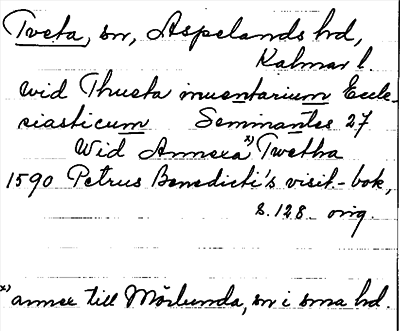 Tveta, sn, Aspelands hd,
Kalmar l.
wid Thueta inuentarium Eccle-
siasticum Seminantes 27
Wid Annexa x) Twetha
1590 Petrus Benedicti's visit-bok,
s. 128 orig.
x) annex till Mörlunda, sn i sma hd.